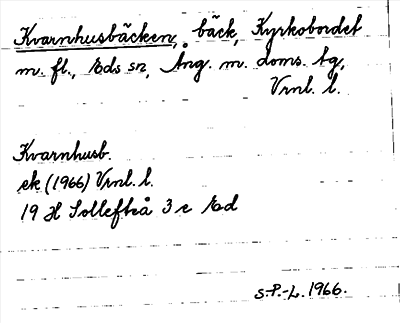 Kvarnhusbäcken, bäck, Kyrkobordet
m. fl., Eds sn, Ång. m. doms. tg,
Vrnl. l.
Kvarnhusb.
ek (1966) Vrnl. l.
19 H Sollefteå 3 e Ed
S.-P.-L. 1966.